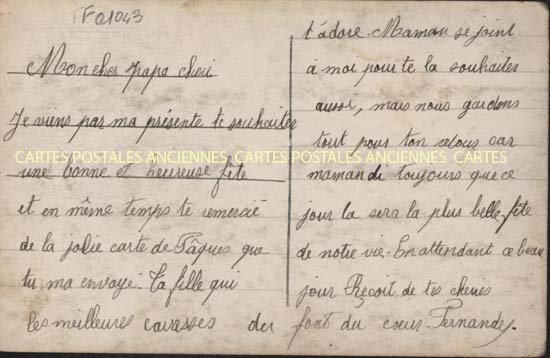 FQ1043
Mon cher papa cheri
Je viens par ma présente te souhaiter
CARTES POSTALES ANCIENNES CARTES POSTALES ANCIENNES CARTES
une bonne et heureuse fête
et en même temps te remercié
de la jolie carte de Pâques que
tu ma envoyé. Ta fille qui
t'adore. Maman se joint
à moi pour te la souhaiter
aussi, mais nous gardons
tout pour ton retour car
maman di toujours que ce
jour la sera la plus belle fête
de notre vie. En attendant ce beau
jour Reçoit de tes cheries
les meilleures caresses du font du cœur. Fernande.